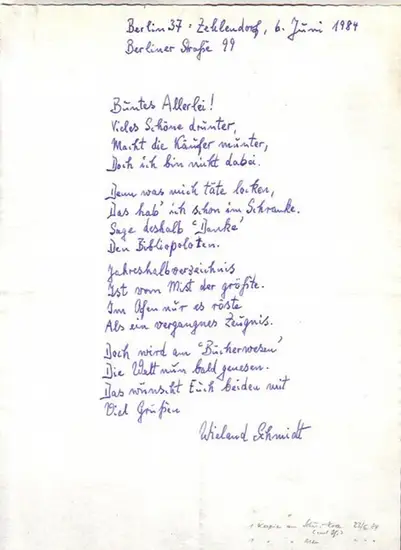 Berlin 37 - Zehlendorf, 6. Juni 1984
Berliner Straße 99
Buntes Allerlei!
Vieles Schöne drunter,
Macht die Käufer munter,
Doch ich bin nicht dabei.
Denn was mich täte locken,
Das hab' ich schon im Schranke.
Sage deshalb "Danke"
Den Bibliopoloten.
Jahreshalbverzeichnis
Ist vom Mist der größte.
Im Ofen nur es röste
Als ein vergangnes Zeugnis.
Doch wird am "Bücherwesen"
Die Welt nun bald genesen.
Das wünscht Euch beiden mit
Viel Grüßen
Wieland Schmidt